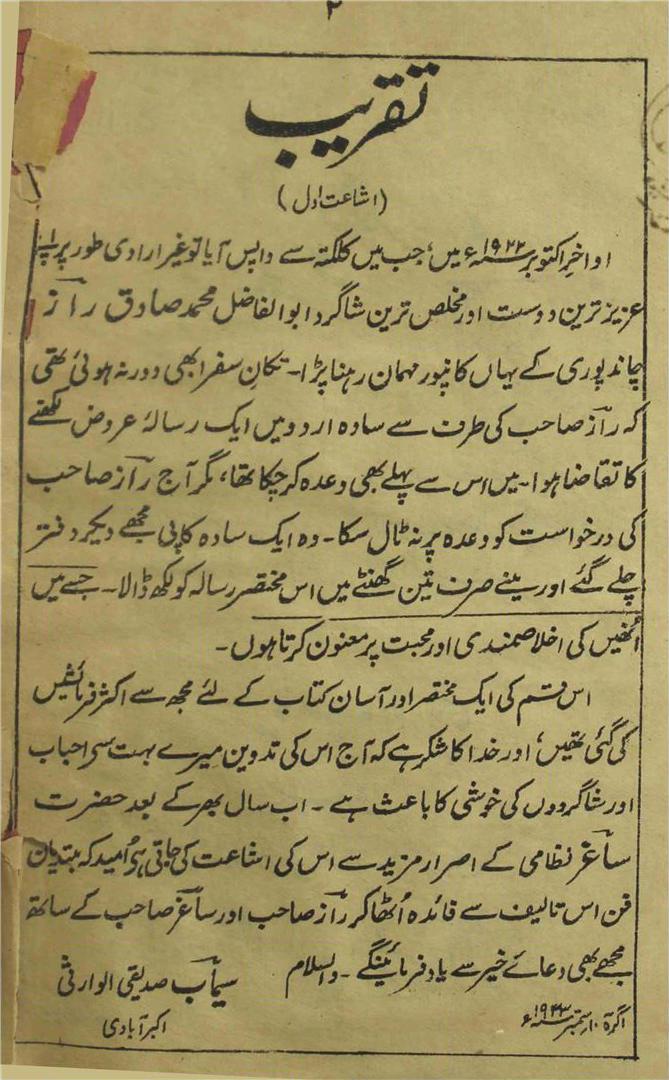 ۲
تقریب
(اشاعت اول)
اواخرِ اکتوبر ۱۹۲۲ء میں، جب میں کلکتہ سے واپس آیا تو غیر ارادی طور پر اپنے
عزیز ترین دوست اور مخلص ترین شاگرد ابوالفاضل محمد صادق راز
چاندپوری کے یہاں کانپور مہمان رہنا پڑا۔ تکانِ سفر ابھی دور نہ ہوئی تھی
کہ رازؔ صاحب کی طرف سے سادہ اردو میں ایک رسالۂ عروض لکھنے
کا تقاضا ہوا۔ میں اس سے پہلے بھی وعدہ کر چکا تھا، مگر آج رازؔ صاحب
کی درخواست کو وعدہ پر نہ ٹال سکا۔ وہ ایک سادہ کاپی مجھے دیکر دفتر
چلے گئے اور مینے صرف تین گھنٹے میں اس مختصر رسالہ کو لکھ ڈالا۔ جسے میں
اُنھیں کی اخلاصمندی اور محبت پر معنون کرتا ہوں۔
اس قسم کی ایک مختصر اور آسان کتاب کے لئے مجھ سے اکثر فرمائشیں
کی گئی تھیں، اور خدا کا شکر ہے کہ آج اس کی تدوین میرے بہت سی احباب
اور شاگردوں کی خوشی کا باعث ہے۔ اب سال بھر کے بعد حضرت
ساغرؔ نظامی کے اصرار مزید سے اس کی اشاعت کی جاتی ہی اُمید کہ مبتدیان
فن اس تالیف سے فائدہ اُٹھا کر رازؔ صاحب اور ساغرؔ صاحب کے ساتھ
مجھے بھی دعائے خیر سے یاد فرمائینگے۔ والسلام
سیمابؔ صدیقی الوارثی
اکبرآبادی
آگرہ ۱۰ ستمبر ۱۹۲۳ء